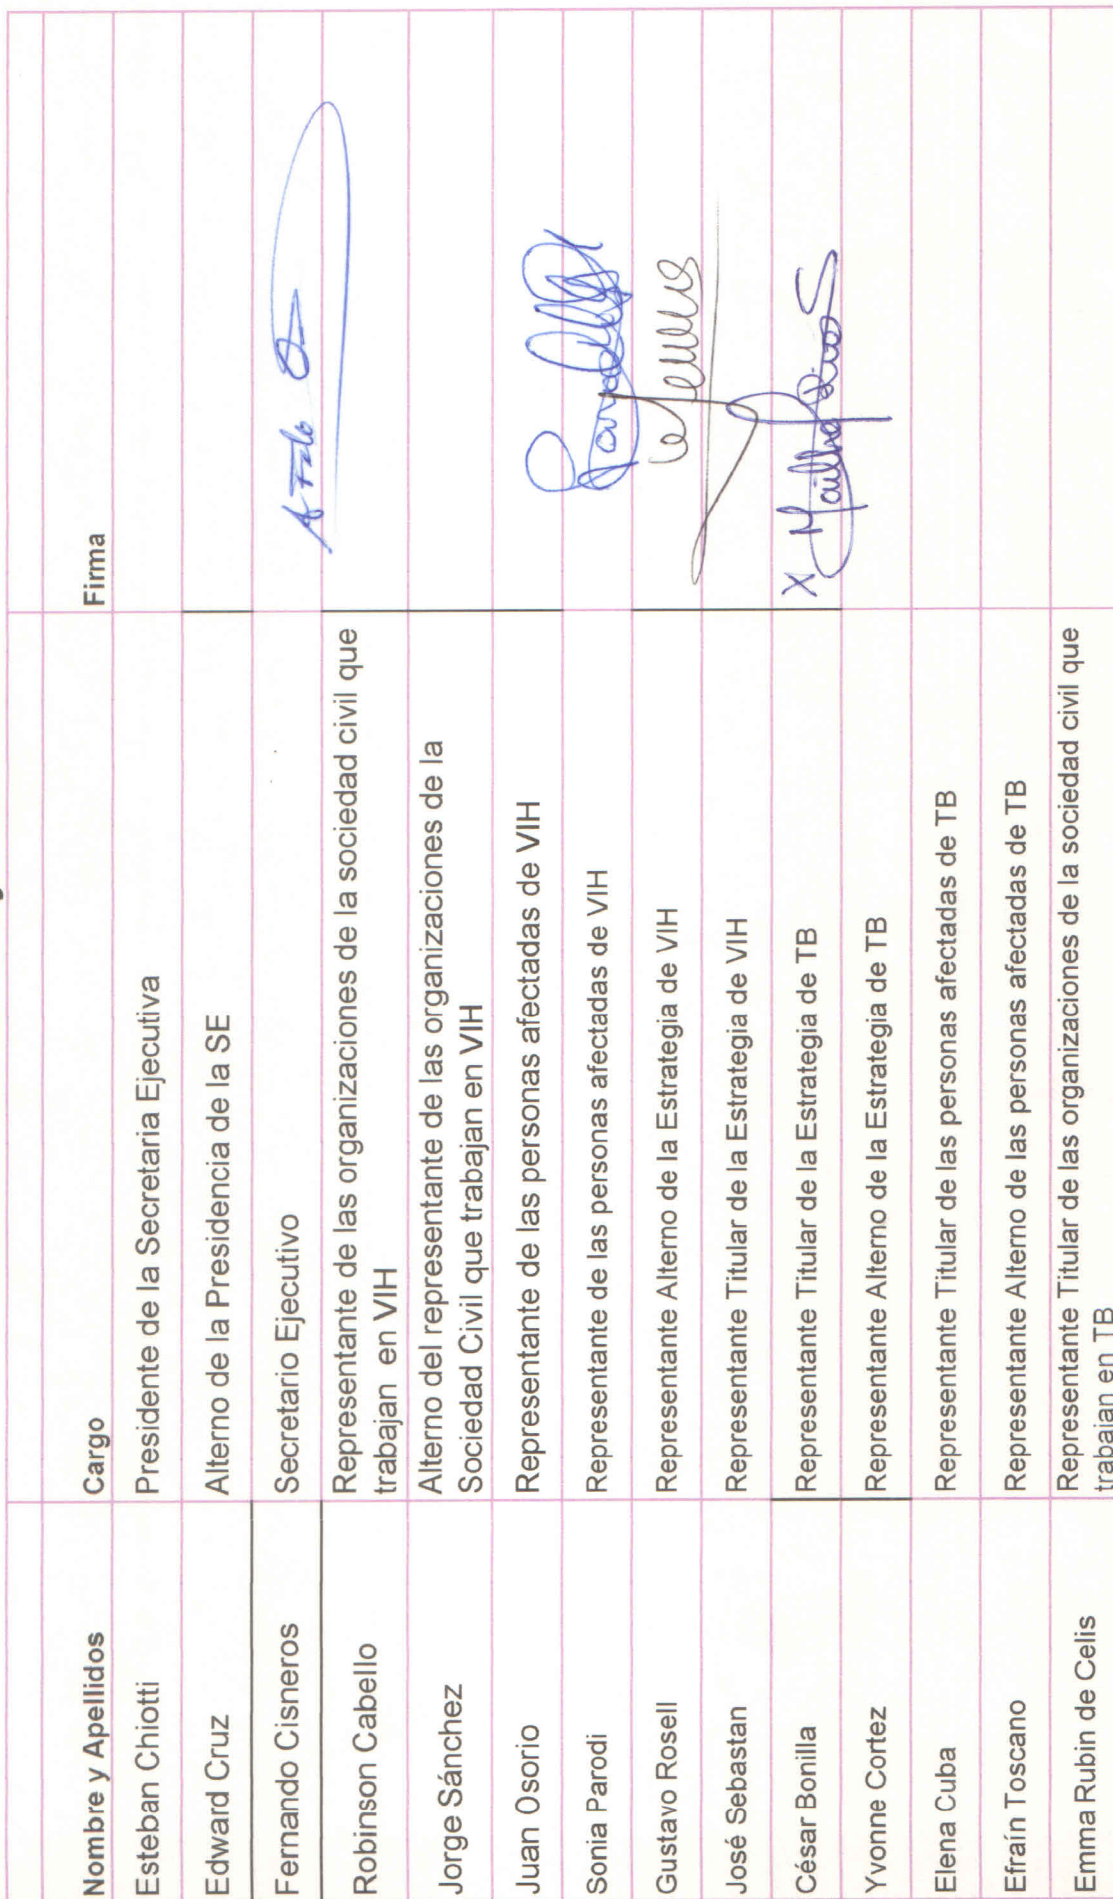 Nombre y Apellidos Cargo Firma
Esteban Chiotti Presidente de la Secretaria Ejecutiva
Edward Cruz Alterno de la Presidencia de la SE
Fernando Cisneros Secretario Ejecutivo
Robinson Cabello Representante de las organizaciones de la sociedad civil que
trabajan en VIH
Jorge Sánchez Alterno del representante de las organizaciones de la
Sociedad Civil que trabajan en VIH
Juan Osorio Representante de las personas afectadas de VIH
Sonia Parodi Representante de las personas afectadas de VIH
Gustavo Rosell Representante Alterno de la Estrategia de VIH
José Sebastan Representante Titular de la Estrategia de VIH
César Bonilla Representante Titular de la Estrategia de TB
Yvonne Cortez Representante Alterno de la Estrategia de TB
Elena Cuba Representante Titular de las personas afectadas de TB
Efraín Toscano Representante Alterno de las personas afectadas de TB
Emma Rubin de Celis Representante Titular de las organizaciones de la sociedad civil que
trabajan en TB